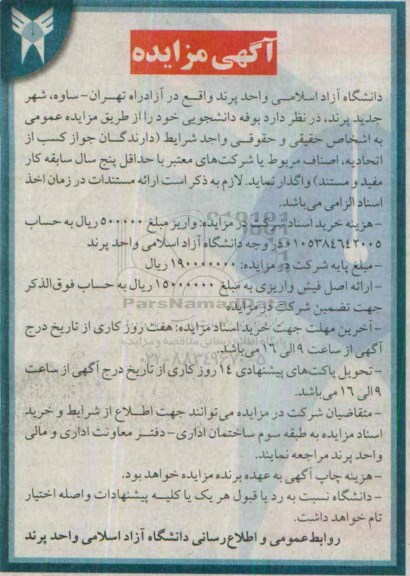 آگهی مزایده
دانشگاه آزاد اسلامی واحد پرند واقع در آزادراه تهران-ساوه، شهر
جدید پرند، در نظر دارد بوفه دانشجویی خود را از طریق مزایده عمومی
به اشخاص حقیقی و حقوقی واجد شرایط (دارندگان جواز کسب از
اتحادیه، اصناف مربوط یا شرکت‌های معتبر با حداقل پنج سال سابقه کار
مفید و مستند) واگذار نماید. لازم به ذکر است ارائه مستندات در زمان اخذ
اسناد الزامی می‌باشد.
-هزینه خرید اسناد شرکت در مزایده: واریز مبلغ ۵۰۰۰۰۰ ریال به حساب
۰۱۰۵۳۸۴۶۴۲۰۰۵ در وجه دانشگاه آزاد اسلامی واحد پرند
-مبلغ پایه شرکت در مزایده: ۱۹۰۰۰۰۰۰۰ ریال
-ارائه اصل فیش واریزی به مبلغ ۱۵۰۰۰۰۰۰ ریال به حساب فوق‌الذکر
جهت تضمین شرکت در مزایده
ParsNamadData
-آخرین مهلت جهت خرید اسناد مزایده: هفت روز کاری از تاریخ درج
پایگاه اطلاع رسانی مناقصه و مزایده
آگهی از ساعت ۹ الی ۱۶ می‌باشد.
-تحویل پاکت‌های پیشنهادی ۱۴ روز کاری از تاریخ درج آگهی از ساعت
۹ الی ۱۶ می‌باشد.
-متقاضیان شرکت در مزایده می‌توانند جهت اطلاع از شرایط و خرید
اسناد مزایده به طبقه سوم ساختمان اداری-دفتر معاونت اداری و مالی
واحد پرند مراجعه نمایند.
-هزینه چاپ آگهی به عهده برنده مزایده خواهد بود.
-دانشگاه نسبت به رد یا قبول هر یک یا کلیه پیشنهادات واصله اختیار
تام خواهد داشت.
روابط عمومی و اطلاع رسانی دانشگاه آزاد اسلامی واحد پرند